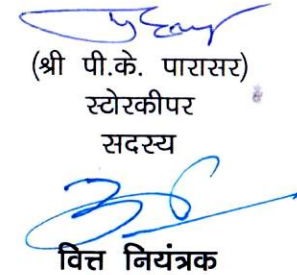 (श्री पी.के. पारासर)
स्टोरकीपर
सदस्य
वित्त नियंत्रक